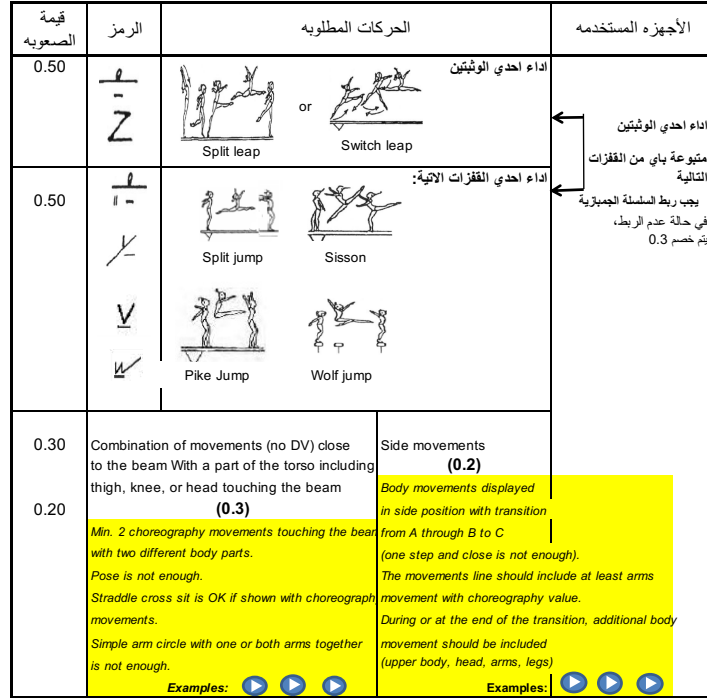 الأجهزه المستخدمه
الحركات المطلوبه
الرمز
قيمة
الصعوبه
اداء احدي الوثبتين
متبوعة باي من القفزات
التالية
يجب ربط السلسلة الجمبازية
في حالة عدم الربط،
يتم خصم 0.3
اداء احدي الوثبتين
Split leap
or
Switch leap
0.50
اداء احدي القفزات الاتية:
Split jump
Sisson
Pike Jump
Wolf jump
0.50
0.30
0.20
Combination of movements (no DV) close
to the beam With a part of the torso including
thigh, knee, or head touching the beam
(0.3)
Min. 2 choreography movements touching the bean
with two different body parts.
Pose is not enough.
Straddle cross sit is OK if shown with choreograph
movements.
Simple arm circle with one or both arms together
is not enough.
Examples:
Side movements
(0.2)
Body movements displayed
in side position with transition
from A through B to C
(one step and close is not enough).
The movements line should include at least arms
movement with choreography value.
During or at the end of the transition, additional body
movement should be included
(upper body, head, arms, legs)
Examples: